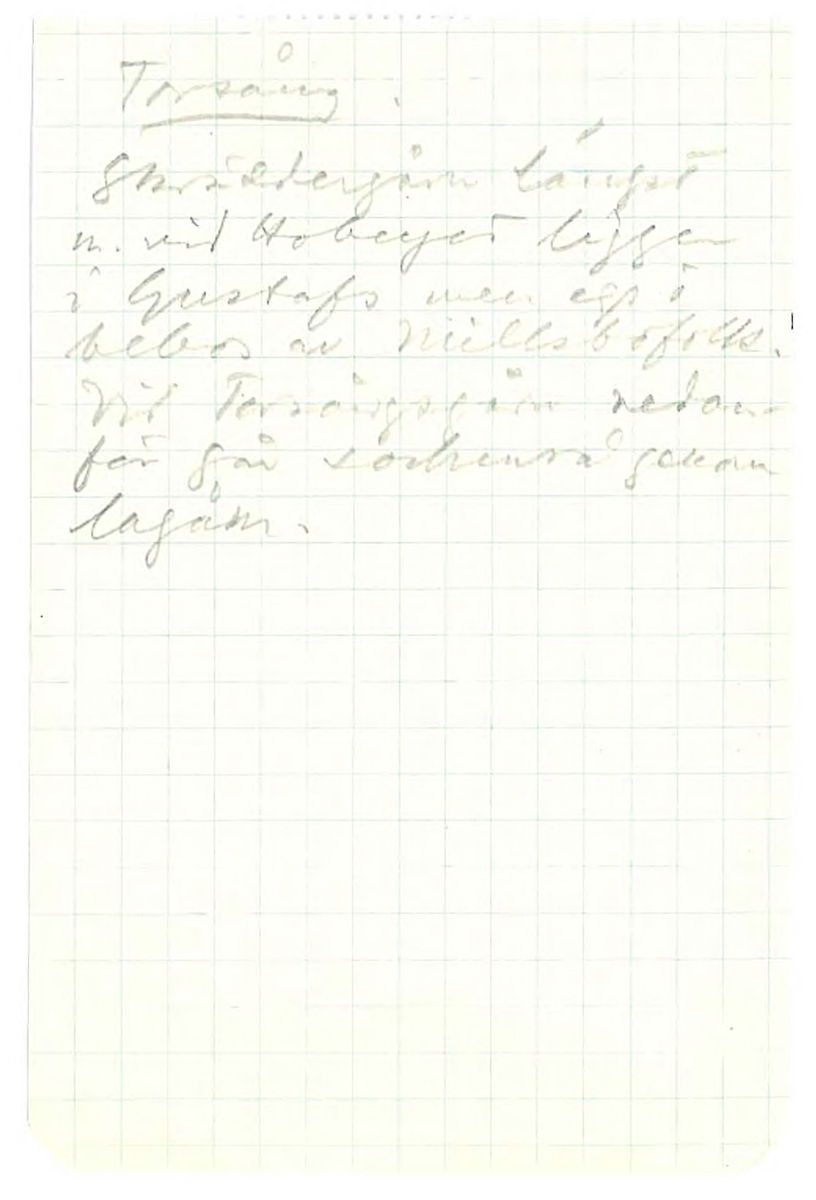 Torsång.
Skräddergårn längst
n. vid Hoberget ligger
i Gustafs men
bebos av Millsbofolk.
Vid Torsångsgårn nedan
för går sockenrå genom
lagårn.